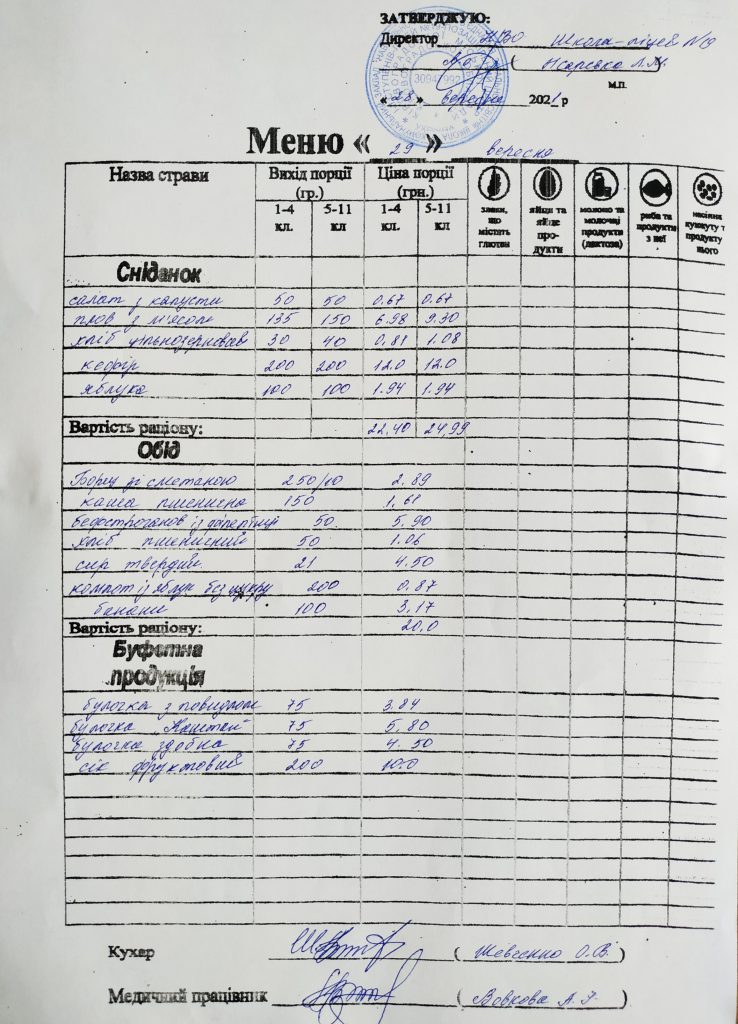 ЗАТВЕРДЖУЮ:
Директор НВО Школа-ліцей №9
м.п.
«28» вересня 2021 р
Меню « 29 » вересня
Назва страви Вихід порції (гр.) Ціна порції (грн.) злаки, що містять глютен яйце та яйце продукти молоко та молочні продукти (лактоза) риба та продукти з неї насіння кунжуту т продукту нього
1-4 кл. 5-11 кл 1-4 кл. 5-11 кл.
Сніданок
салат з капусти 50 50 0.67 0.67
плов з м'ясом 135 150 6.98 9.30
хліб цільнозерновий 30 40 0.81 1.08
кефір 200 200 12.0 12.0
яблука 100 100 1.94 1.94
Вартість раціону: 22,40 24,99
Обід
Борщ зі сметаною 250/10 2.89
каша пшенична 150 1.61
бефстроганов із 50 5.90
хліб пшеничний 50 1.06
сир твердий 21 4.50
компот із яблук без цукру 200 0.87
банани 100 3,17
Вартість раціону: 20,0
Буфетна
продукція
булочка з повидлом 75 3.84
булочка Каштан 75 5,80
булочка здобна 75 4.50
сік фруктовий 200 10.0
Кухар ( Шевченко О.В. )
Медичний працівник ( Вовкова А.Г. )